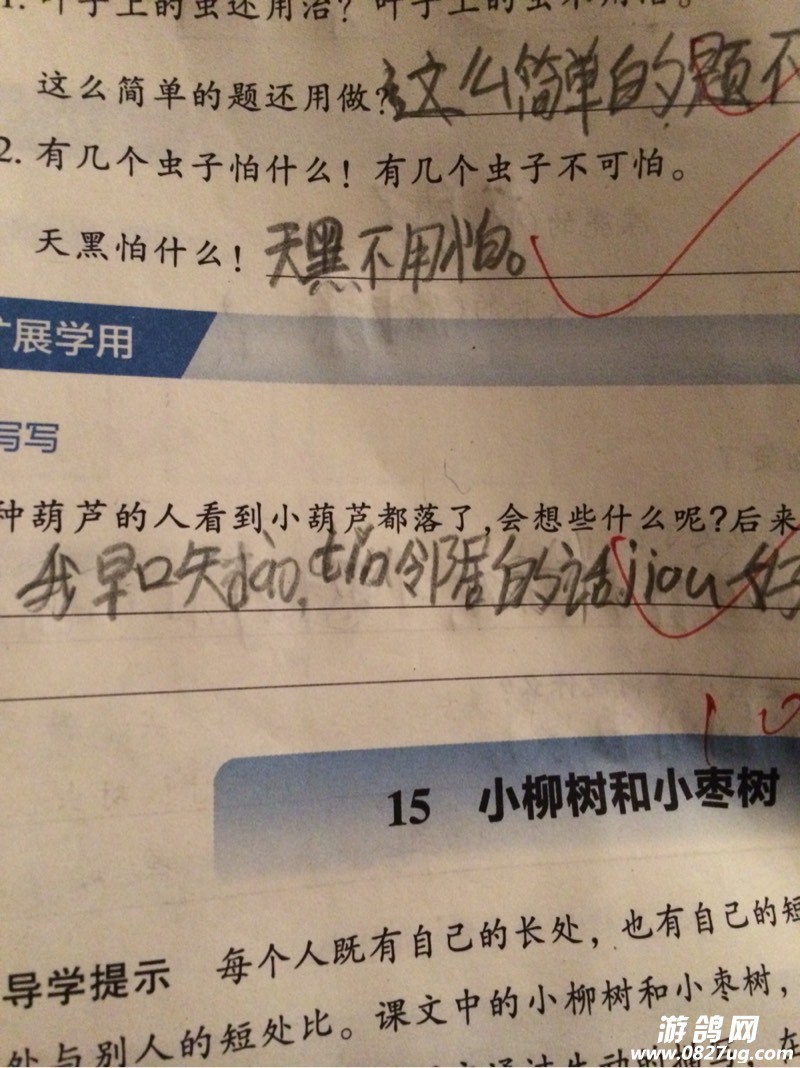 1. 叶子上的虫还用治？叶子上的虫不用治。
这么简单的题还用做？这么简单的题不
2. 有几个虫子怕什么！有几个虫子不可怕。
天黑怕什么！天黑不用怕。
扩展学用
写写
种葫芦的人看到小葫芦都落了,会想些什么呢?后来
我早口矢 邻居的话jiou好
10
15 小柳树和小枣树
导学提示 每个人既有自己的长处，也有自己的短
处与别人的短处比。课文中的小柳树和小枣树，
游鸽网
www.0827ug.com